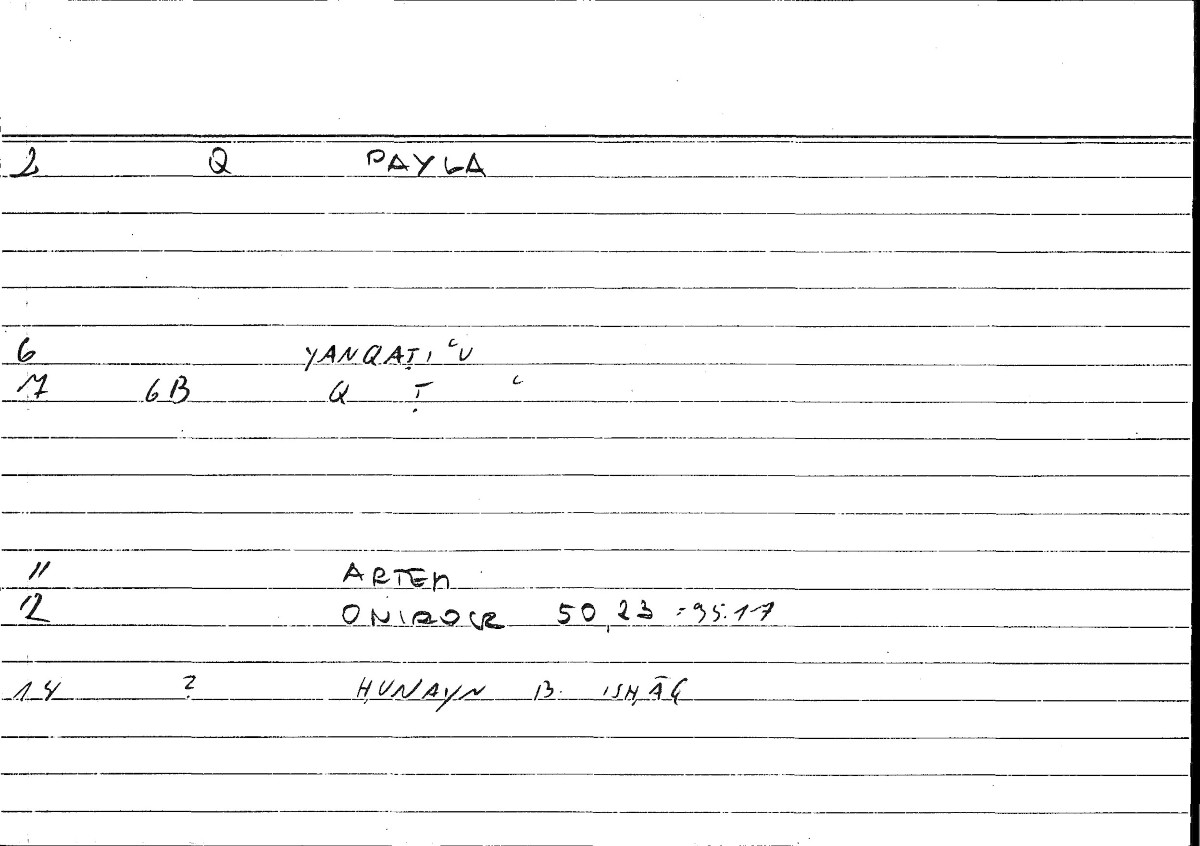 2 Q PAYLA
6 YANQAṬIʿU
7 6B Q Ṭ ʿ
11 ARTEM
12 ONIROCR 50,23 = 95.17
14 ? ḤUNAYN B. ISḤĀQ